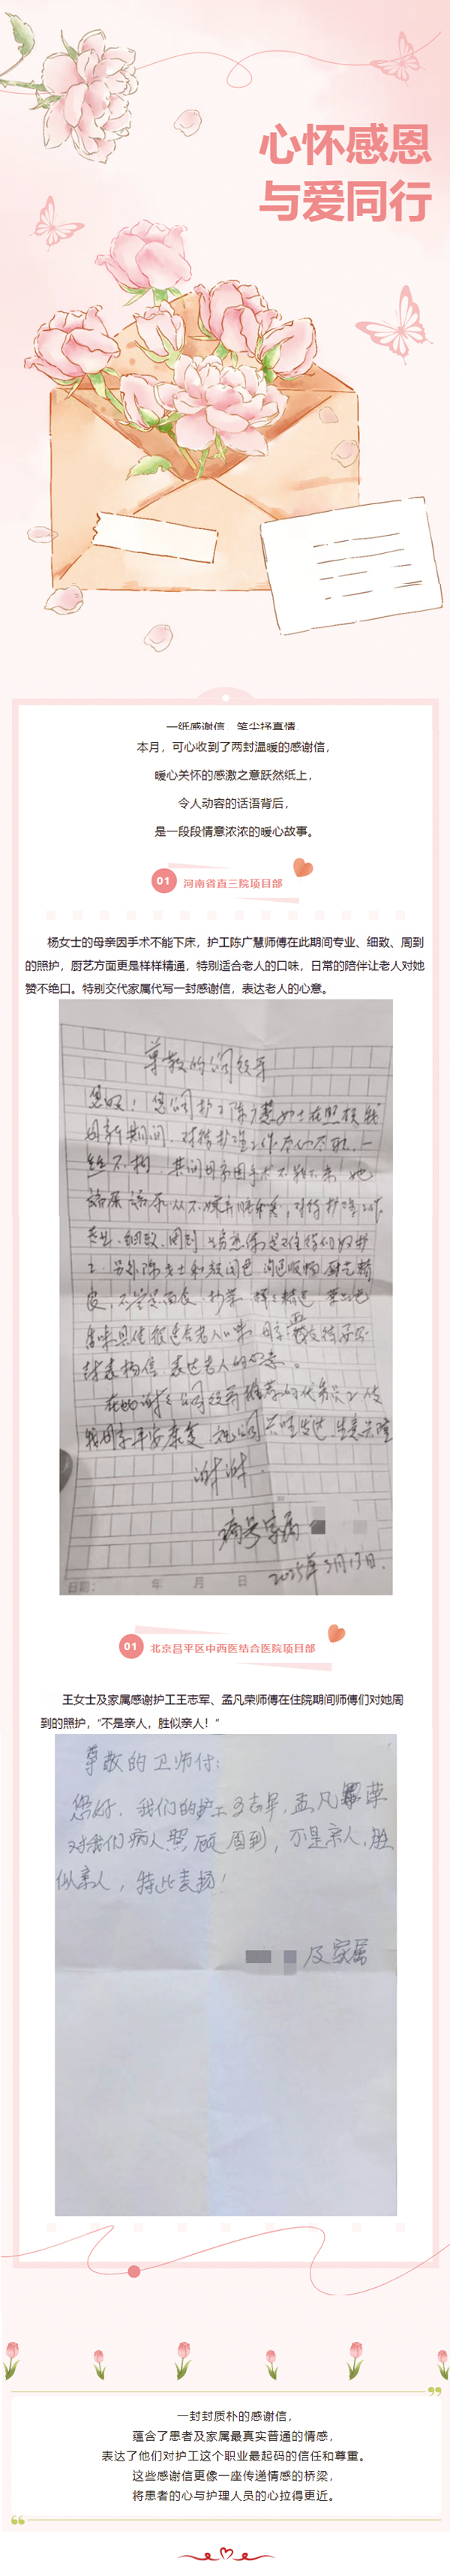 心怀感恩
与爱同行
一纸感谢信，笔尖抒真情，
本月，可心收到了两封温暖的感谢信，
暖心关怀的感激之意跃然纸上，
令人动容的话语背后，
是一段段情意浓浓的暖心故事。
01 河南省直三院项目部
杨女士的母亲因手术不能下床，护工陈广慧师傅在此期间专业、细致、周到
的照护，厨艺方面更是样样精通，特别适合老人的口味，日常的陪伴让老人对她
赞不绝口。特别交代家属代写一封感谢信，表达老人的心意。
尊敬的公司领导
您好！您公司护工陈广慧女士在照顾我
母亲期间，对待护理工作尽心尽职，一
丝不拘，其间母亲因手术不能下来，她
专业、细致、周到
食味具佳很适合老人口味
封表扬信，表达老人的心意。
我母亲平安康复 祝公司兴旺发达，生意兴隆
谢谢.
病号家属
日期： 年 月 日
2025年3月13日.
01 北京昌平区中西医结合医院项目部
王女士及家属感谢护工王志军、孟凡荣师傅在住院期间师傅们对她周
到的照护，“不是亲人，胜似亲人！”
尊敬的卫师付：
您好，我们的护工王志军，孟凡荣
对我们病人照顾周到，不是亲人，胜
似亲人，特此表扬！
及家属
一封封质朴的感谢信，
蕴含了患者及家属最真实普通的情感，
表达了他们对护工这个职业最起码的信任和尊重。
这些感谢信更像一座传递情感的桥梁，
将患者的心与护理人员的心拉得更近。